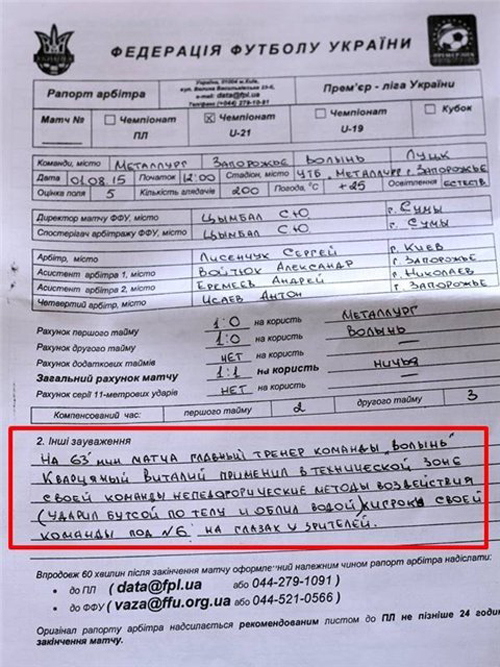 ФЕДЕРАЦІЯ ФУТБОЛУ УКРАЇНИ
Рапорт арбітра
Україна, 01004 м.Київ,
вул. Велика Васильківська 23-б,
e-mail: data@fpl.ua
Телефони (+044) 278-10-91
Прем'єр - ліга України
Матч №
Чемпіонат ПЛ
☒ Чемпіонат U-21
Чемпіонат U-19
Кубок
Команди, місто МЕТАЛЛУРГ ЗАПОРОЖЬЕ ВОЛЫНЬ ЛУЦК
Дата 01.08.15 Початок 12:00 Стадіон, місто УТБ. МЕТАЛЛУРГ г. ЗАПОРОЖЬЕ
Оцінка поля 5 Кількість глядачів 200 Погода, °С +25 Освітлення ЕСТЕСТВ.
Директор матчу ФФУ, місто ЦЫМБАЛ С Ю г. СУМЫ
Спостерігач арбітражу ФФУ, місто ЦЫМБАЛ С Ю г. СУМЫ
Арбітр, місто ЛИСЕНЧУК СЕРГЕЙ г. КИЕВ
Асистент арбітра 1, місто ВОЙТЮК АЛЕКСАНДР г. ЗАПОРОЖЬЕ
Асистент арбітра 2, місто ЕРЕМЕЕВ АНДРЕЙ г. НИКОЛАЕВ
Четвертий арбітр, місто ИСАЕВ АНТОН г. ЗАПОРОЖЬЕ
Рахунок першого тайму 1:0 на користь МЕТАЛЛУРГ
Рахунок другого тайму 1:0 на користь ВОЛЫНЬ
Рахунок додаткових таймів НЕТ на користь —
Загальний рахунок матчу 1:1 на користь НИЧЬЯ
Рахунок серії 11-метрових ударів НЕТ на користь —
Компенсований час: першого тайму 2 другого тайму 3
2. Інші зауваження
НА 63' МИН МАТЧА ГЛАВНЫЙ ТРЕНЕР КОМАНДЫ „ВОЛЫНЬ"
КВАРЦЯНЫЙ ВИТАЛИЙ ПРИМЕНИЛ В ТЕХНИЧЕСКОЙ ЗОНЕ
СВОЕЙ КОМАНДЫ НЕПЕДОГОГИЧЕСКИЕ МЕТОДЫ ВОЗДЕЙСТВИЯ
(УДАРИЛ БУТСОЙ ПО ТЕЛУ И ОБЛИЛ ВОДОЙ) К ИГРОКУ СВОЕЙ
КОМАНДЫ ПОД №6 НА ГЛАЗАХ У ЗРИТЕЛЕЙ.
Впродовж 60 хвилин після закінчення матчу оформлений належним чином рапорт арбітра надіслати:
• до ПЛ ( data@fpl.ua або 044-279-1091 )
• до ФФУ ( vaza@ffu.org.ua або 044-521-0566 )
Оригінал рапорту арбітра надсилається рекомендованим листом до ПЛ не пізніше 24 годин
закінчення матчу.